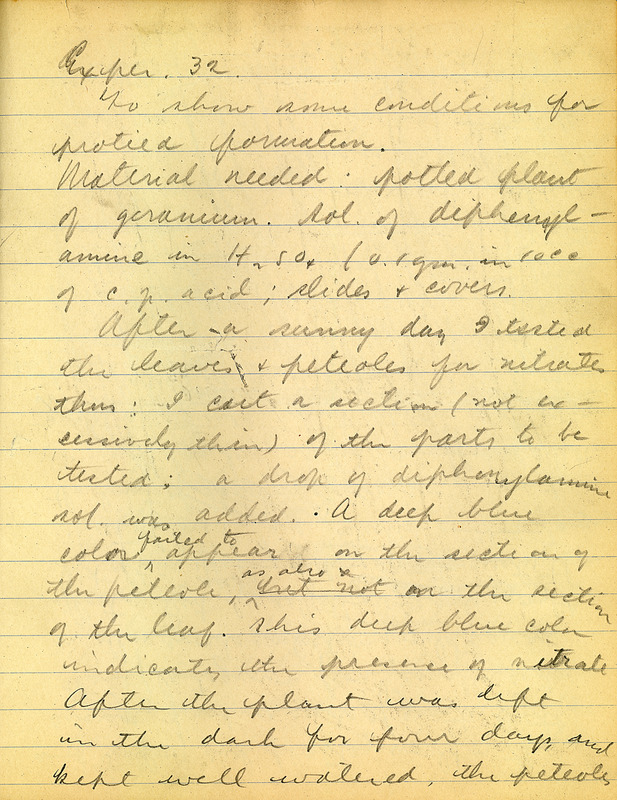 Exper. 32.
To show some conditions for
protied formation.
Material needed: potted plant
of geranium. Sol. of diphenyl-
amine in H2SO4 (0.1 gm. in 10cc
of c.p. acid; slides & covers.
After a sunny day I tested
the leaves & petioles for nitrates
thus: I cut a section (not ex-
cessively thin) of the parts to be
tested; a drop of diphenylamine
sol. was added. A deep blue
failed to
color appear on the section of
as also
the petiole, but not on the section
of the leaf. This deep blue color
indicates the presence of nitrate
After the plant was left
in the dark for four days, and
kept well watered, the petioles